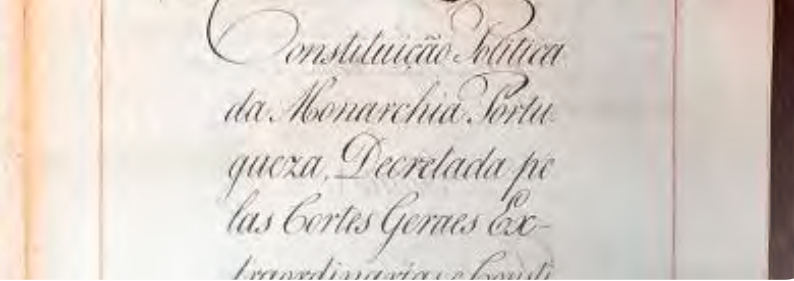 Constituição Politica
da Monarchia Portu
gueza, Decretada pe
las Cortes Geraes Ex-
traordinarias e Consti